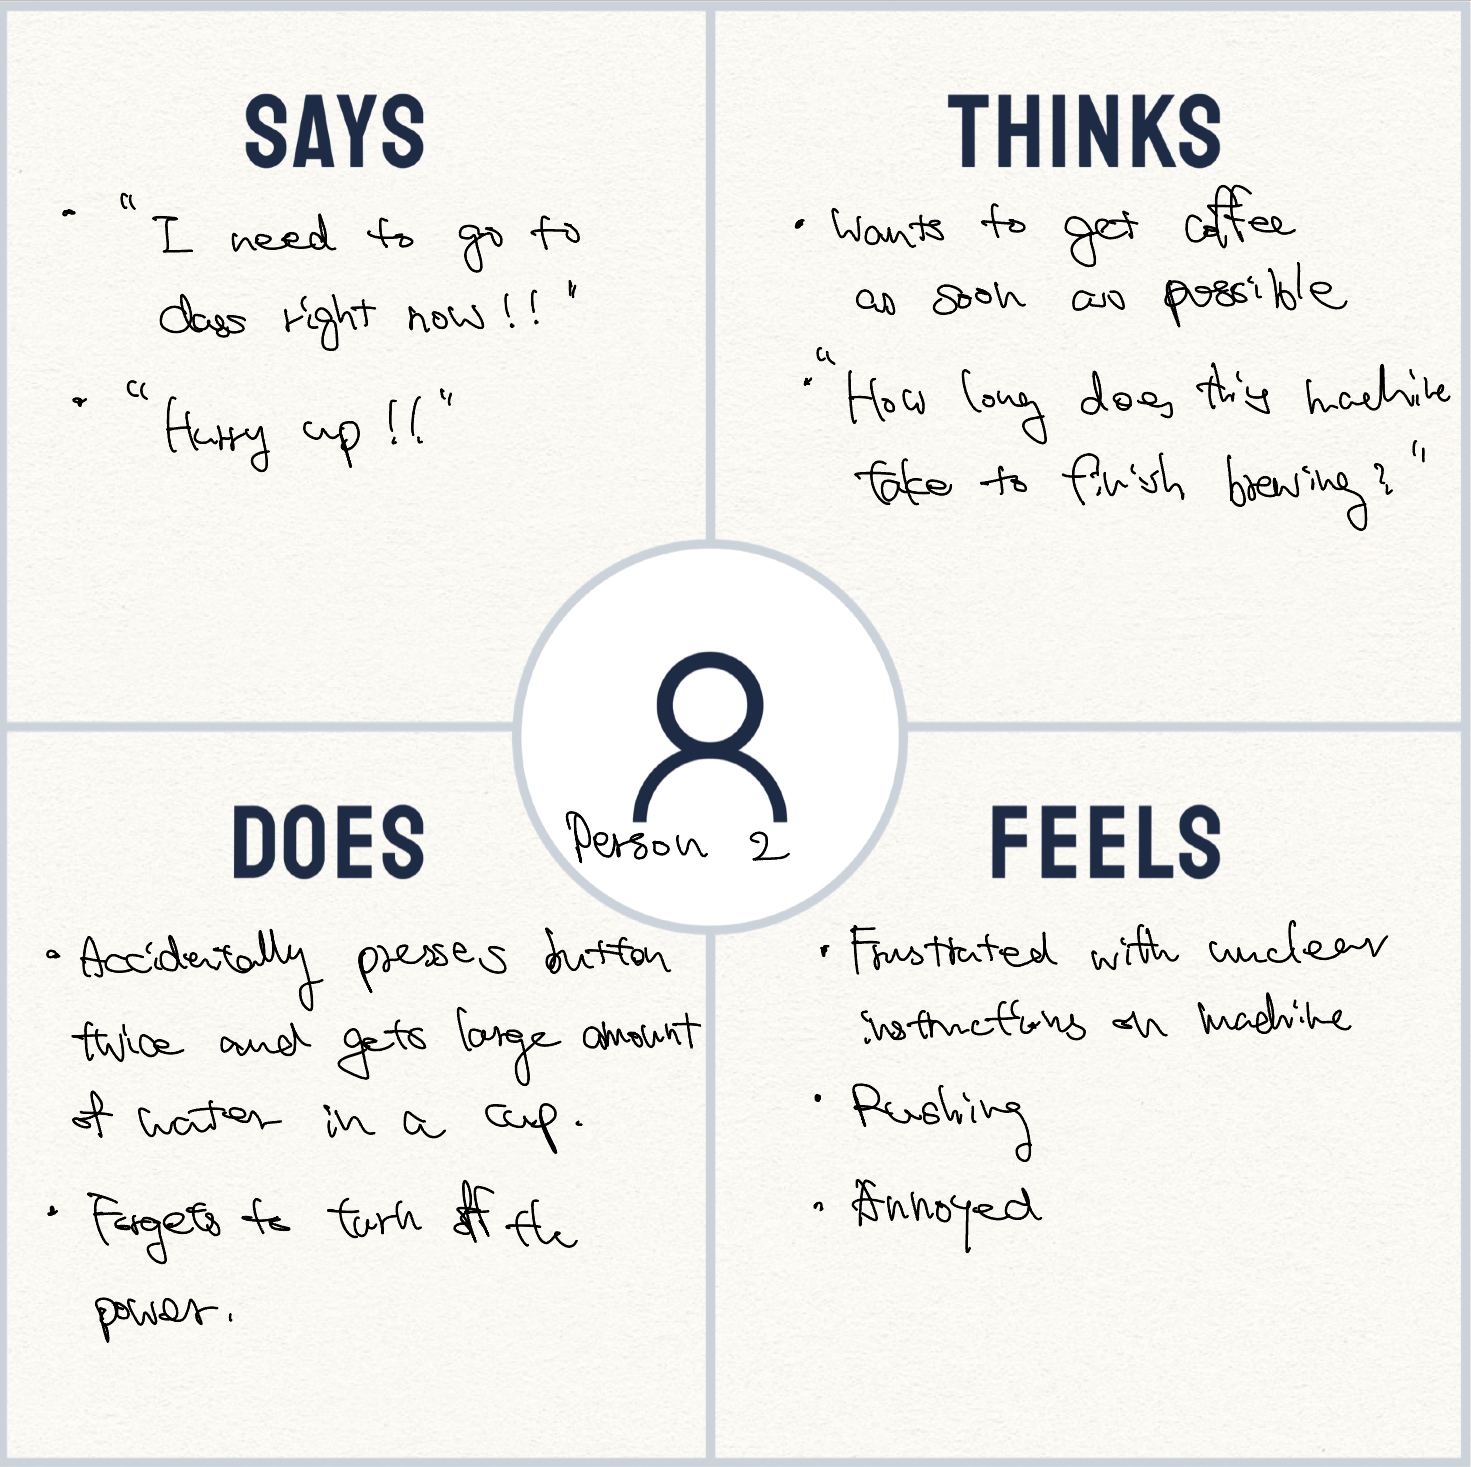 SAYS
• "I need to go to
class right now!!"
• "Hurry up!!"
THINKS
• Wants to get coffee
as soon as possible
• "How long does this machine
take to finish brewing?"
Person 2
DOES
• Accidentally presses button
twice and gets large amount
of water in a cup.
• Forgets to turn off the
power.
FEELS
• Frustrated with unclear
instructions on machine
• Rushing
• Annoyed